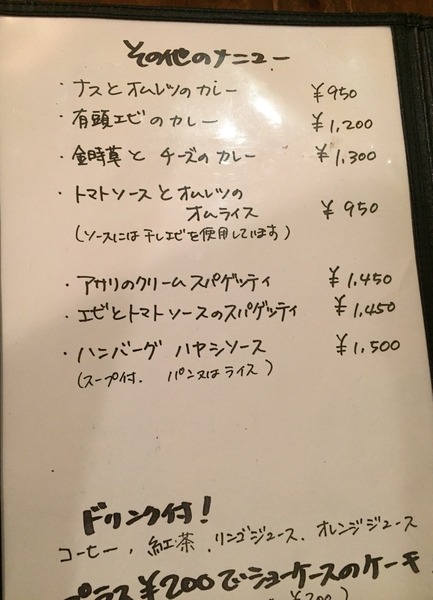 その他のメニュー
・ナスとオムレツのカレー ¥950
・有頭エビのカレー ¥1,200
・金時草とチーズのカレー ¥1,300
・トマトソースとオムレツの
オムライス ¥950
(ソースには干しエビを使用しています)
・アサリのクリームスパゲッティ ¥1,450
・エビとトマトソースのスパゲッティ ¥1,450
・ハンバーグ ハヤシソース ¥1,500
(スープ付. パン又はライス)
ドリンク付!
コーヒー, 紅茶, リンゴジュース. オレンジジュース
プラス¥200でショーケースのケーキ
¥200)